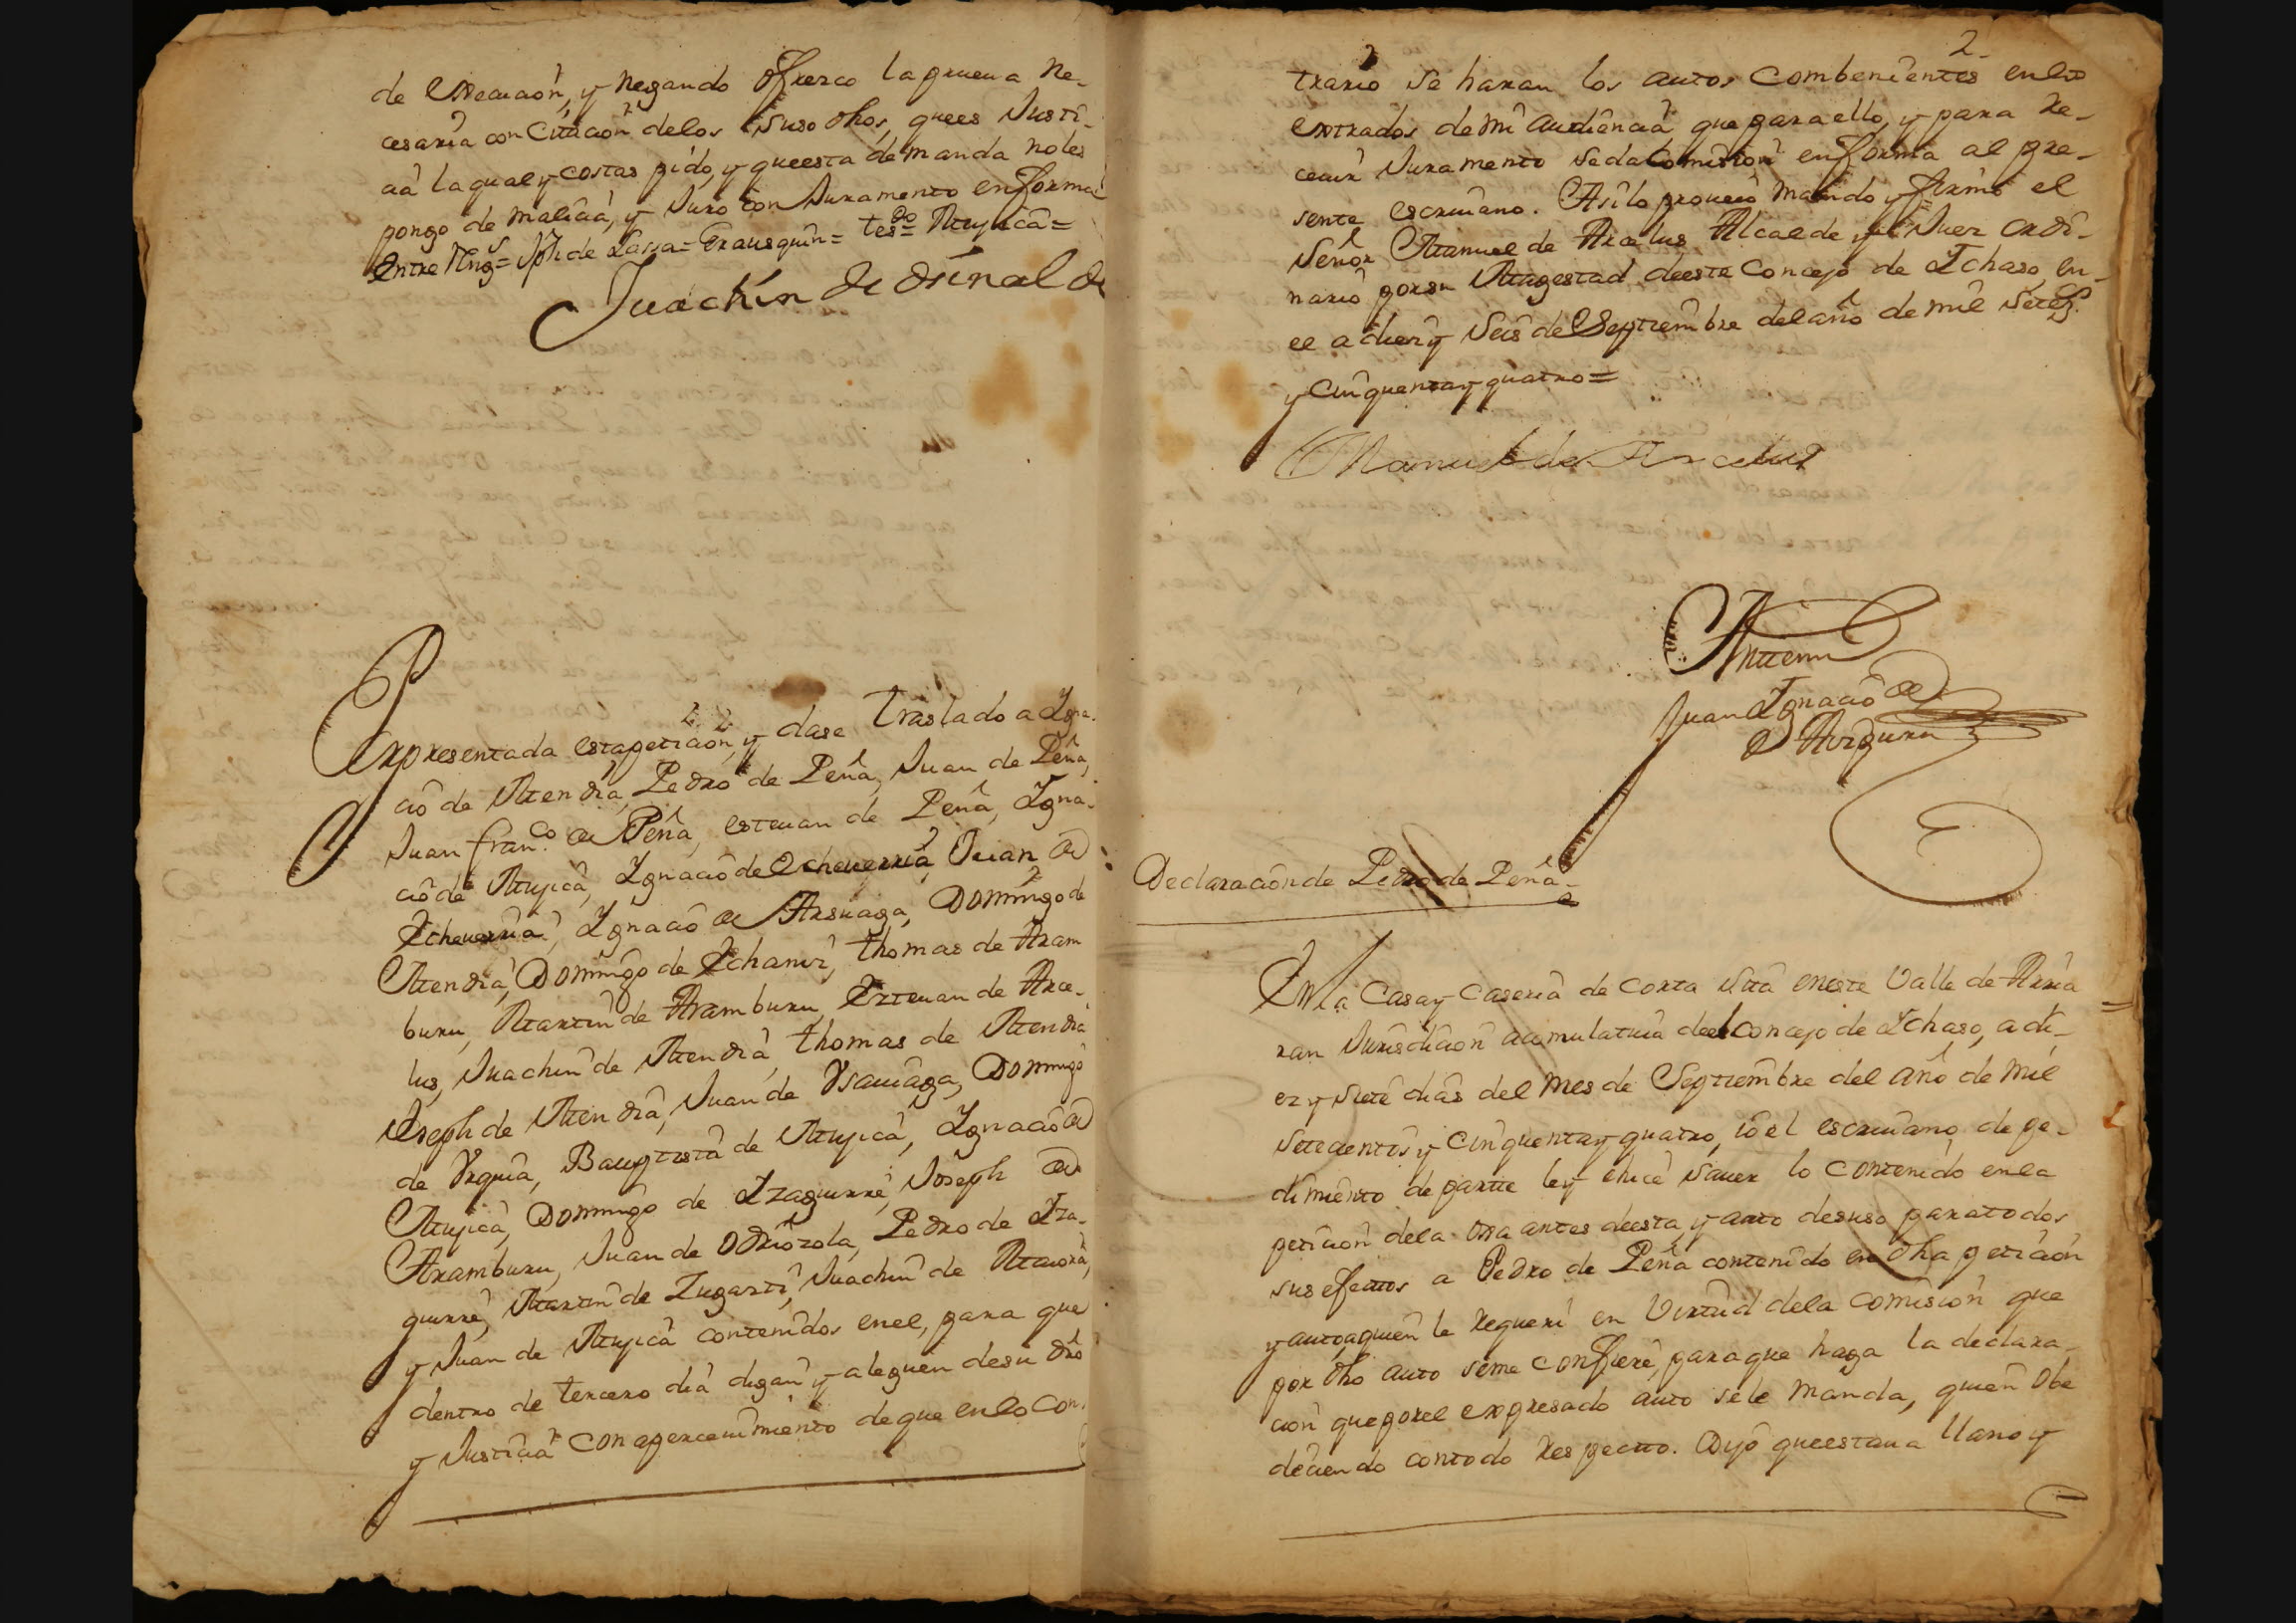 de execucion, y negando ofresco la prueua ne-
cesaria con Citacion delos suso dhos, quees Justi-
cia la qual y costas pido, y queesta demanda noles
pongo de malicia, y Juro con Juramento en forma
Entre Rengs = Jph de Lassa = Erausquin = tesdo = Mujica =
Juachin de Oria
Presentada esta peticion, y dase traslado a Igna-
cio de Mendia, Pedro de Peña, Juan de Peña,
Juan franco de Peña, esteuan de Peña, Igna-
cio de Mujica, Ignacio de Echeuerria, Juan de
Echeuerria, Ignacio de Arsuaga, Domingo de
Mendia, Domingo de Echaniz, thomas de Aram
buru, Martin de Aramburu, Esteuan de Arce-
lus, Juachin de Mendia, thomas de Mendia
Joseph de Mendia, Juan de Vsauiaga, Domingo
de Vrquia, Bauptista de Mujica, Ignacio de
Mujica, Domingo de Izaguirre, Joseph de
Aramburu, Juan de Odriozola, Pedro de Iza-
guirre, Martin de Zugasti, Juachin de
y Juan de Mujica contenidos enel, para que
dentro de tercero dia digan y aleguen desu dro
y Justicia con aperceuimiento de que en lo con-
2
trario se haran los autos combenientes enlos
extrados de mi Audiencia, que para ello, y para re-
ceuir Juramento seda Comision en forma al pre-
sente escriuano. Asilo proueio mando y firmo el
Señor Manuel de Arcelus Alcalde y Juez ordi-
nario porsu Magestad deeste Concejo de Ichaso, en
el a diez y seis de Septiembre del año de mil setez.
y cinquenta y quatro =
Manuel de Arcelus
Antemi
Juan Ignacio de
Aizpuru
Declaracion de Pedro de Peña
En la Casa y Caseria de Corta sita eneste Valle de Arria
ran Jurisdicion acumulatiua del concejo de Ichaso, a di-
ez y siete dias del mes de Septiembre del año de mil
setecientos y cinquenta y quatro, io el escriuano de pe-
dimiento de parte ley e hice sauer lo contenido enla
peticion dela oja antes deesta, y auto desuso para todos
sus efectos a Pedro de Peña contenido en dha peticion
y auto, aquien le requeri en Virtud dela comision que
por dho auto seme confiere, para que haga la declara-
cion que porel expresado auto sele manda, quien obe
deciendo contodo respecto. Dijo queestaua llano y